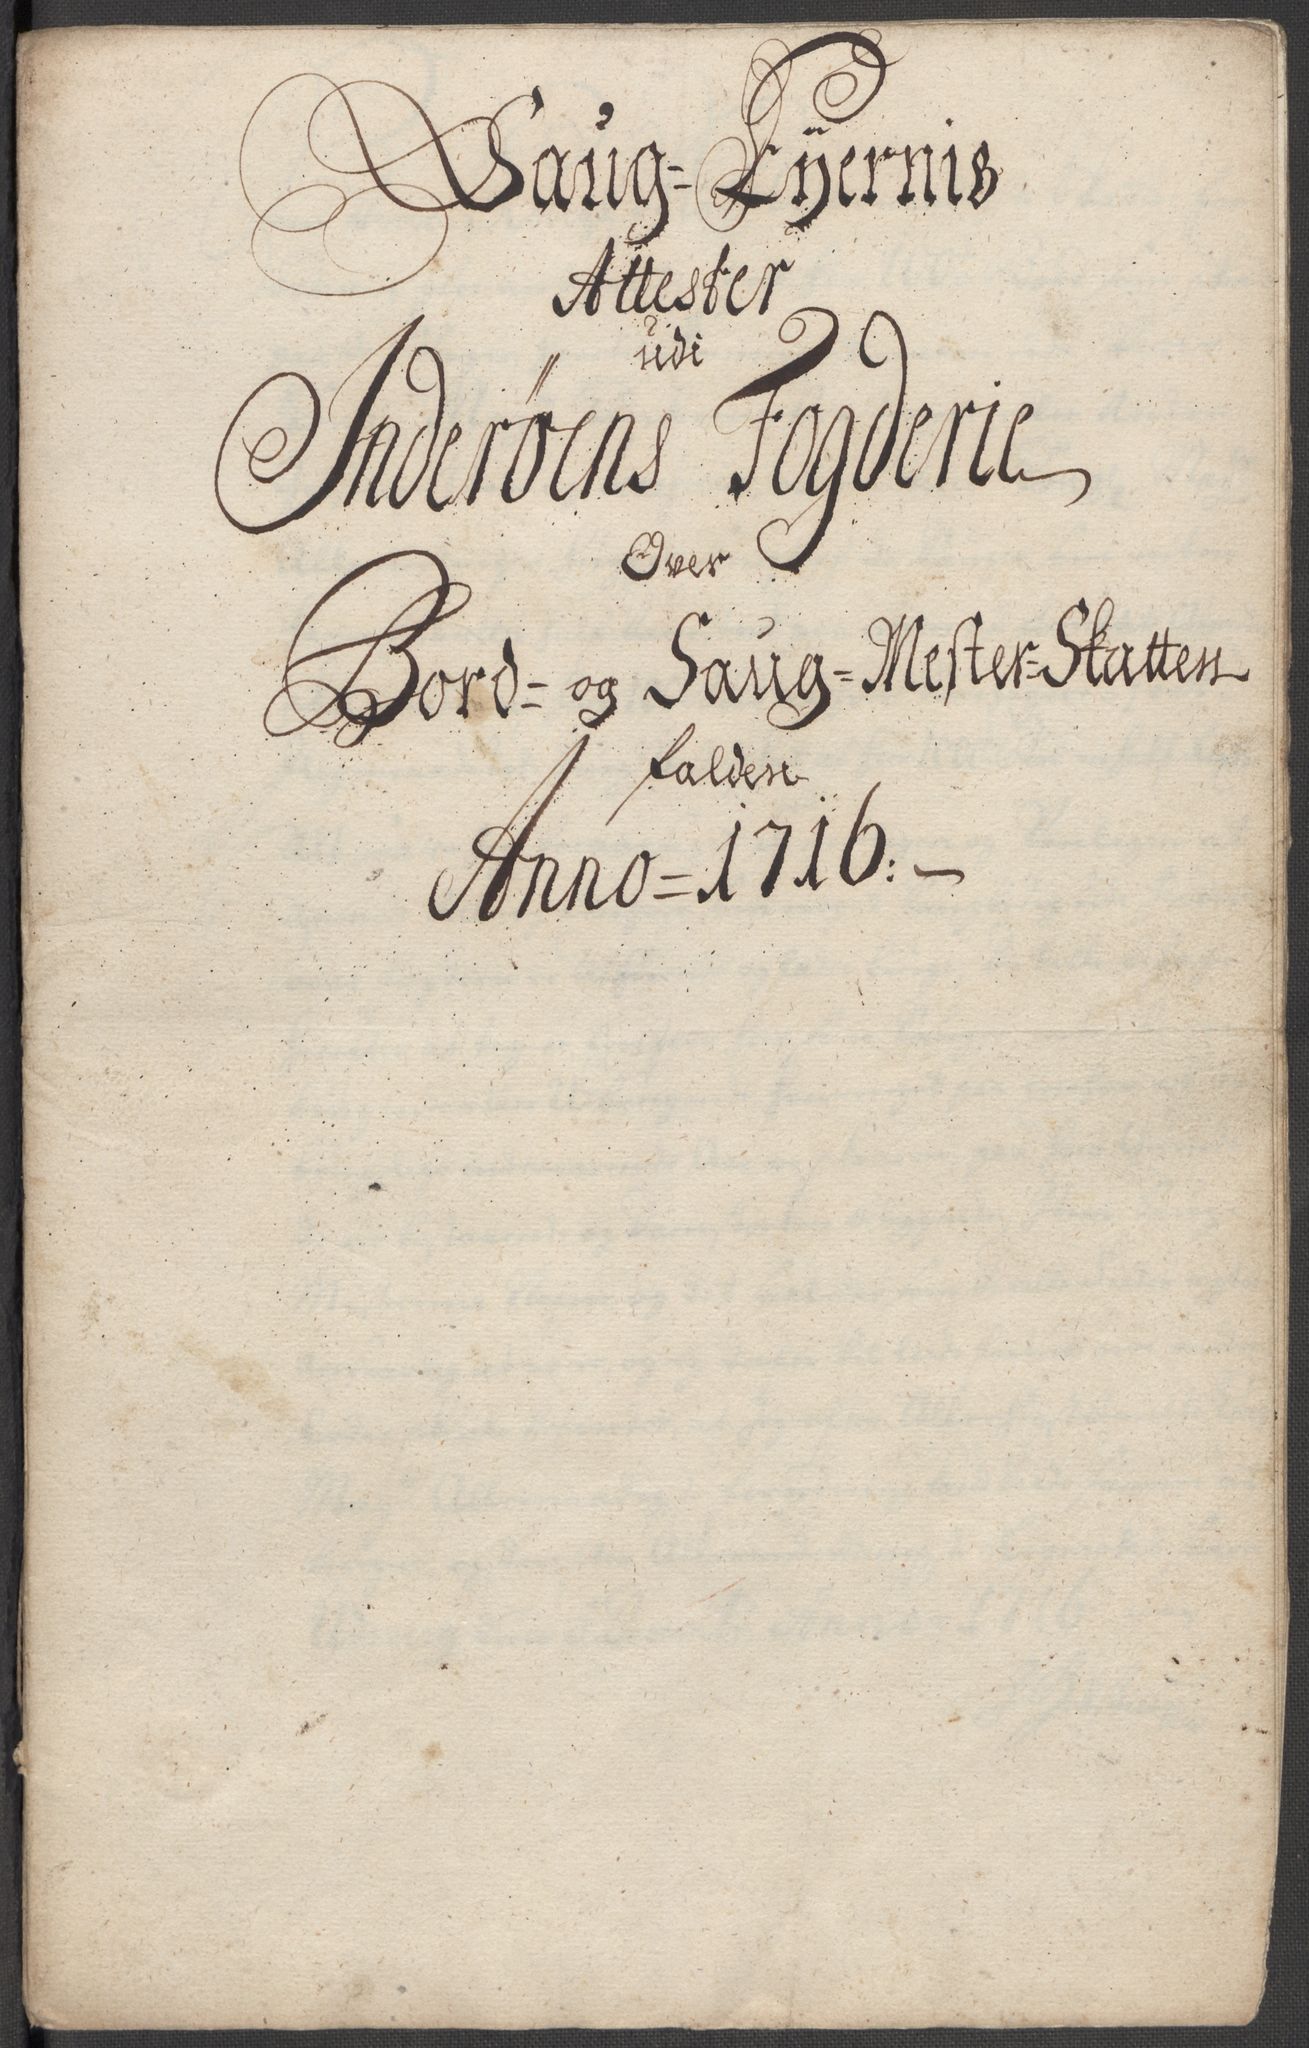 Saug=Eÿernis
Attester
udi
Inderøens Fogderie
Over
Bord= og Saug=Mester=Skatten
falden
Anno=1716:—